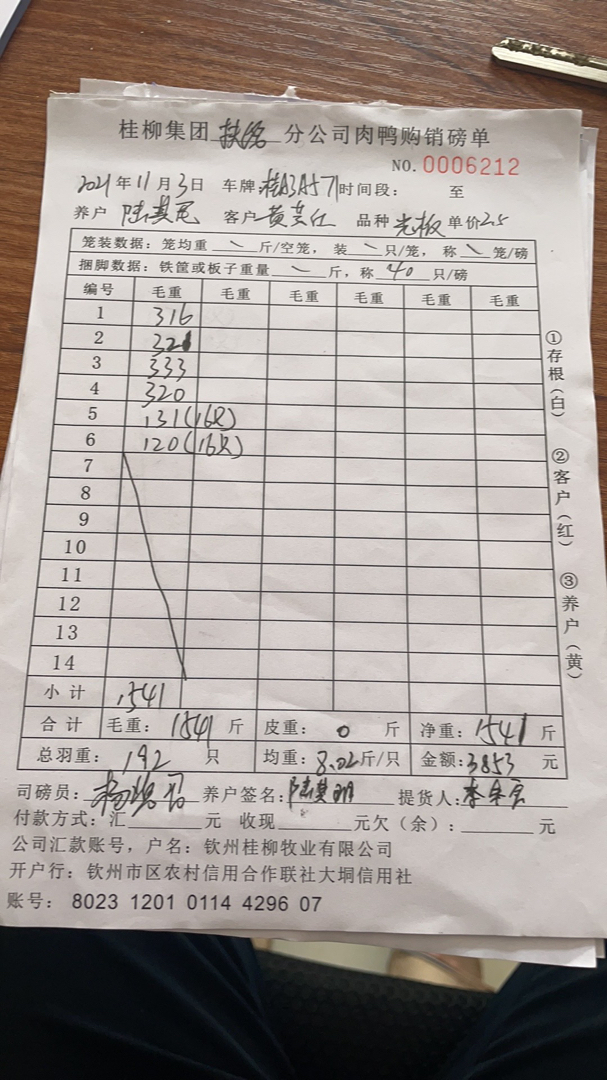 桂柳集团 扶绥 分公司肉鸭购销磅单
NO.0006212
2021年11月3日 车牌:桂A3A571 时间段: 至
养户 陆其 客户 黄 品种 光板 单价2.5
笼装数据:笼均重 \ 斤/空笼,装 \ 只/笼,称 \ 笼/磅
捆脚数据:铁筐或板子重量 \ 斤,称 40 只/磅
编号 毛重 毛重 毛重 毛重 毛重 毛重
1 316
2 321
3 333
4 320
5 131(16只)
6 120(16只)
7
8
9
10
11
12
13
14
小计 1541
合计 毛重:1541 斤 皮重:0 斤 净重:1541 斤
总羽重:192 只 均重:8.02斤/只 金额:3853 元
司磅员:杨 养户签名:陆其明 提货人:李
付款方式:汇 元 收现 元欠(余): 元
公司汇款账号,户名:钦州桂柳牧业有限公司
开户行:钦州市区农村信用合作联社大垌信用社
账号: 8023 1201 0114 4296 07
①存根(白)
②客户(红)
③养户(黄)